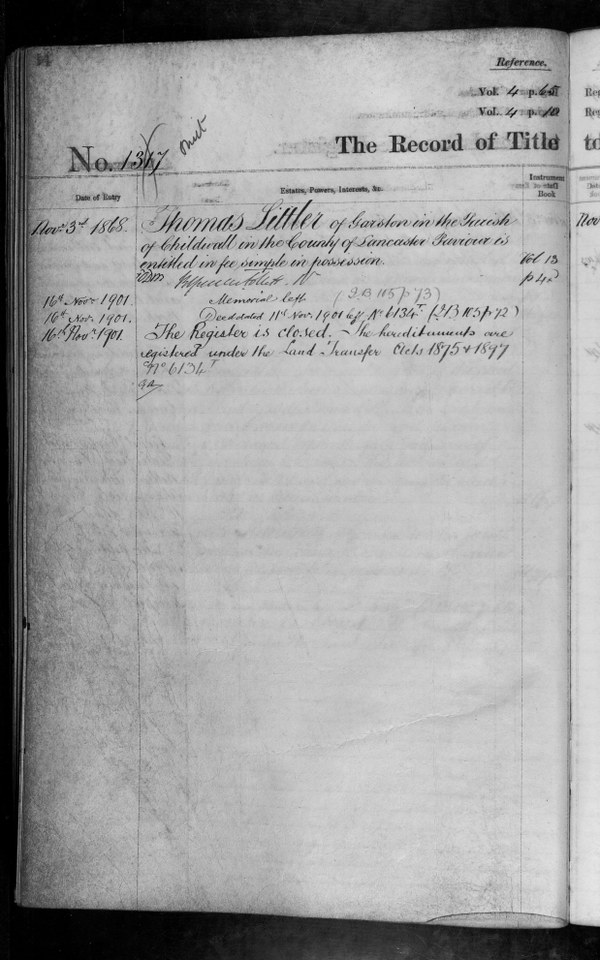 Reference.
Vol. 4 p.
Vol. 4 p. 10
The Record of Title
omit
No. 1367
Instrument
Book
Date of Entry
Estates, Powers, Interests, &c.
Novr 3rd 1868. Thomas Littler of Garston in the Parish
of Childwall in the County of Lancaster Paviour is
entitled in fee simple in possession. Vol 13
p 42
16th Novr 1901. Memorial left (I.B 115 p 73)
16th Nov. 1901. Deed dated 11th Nov. 1901 left No 6134T (I.B 115 p 72)
16th Novr 1901. The Register is closed. – The hereditaments are
registered under the Land Transfer Acts 1875 & 1897
No 6134T